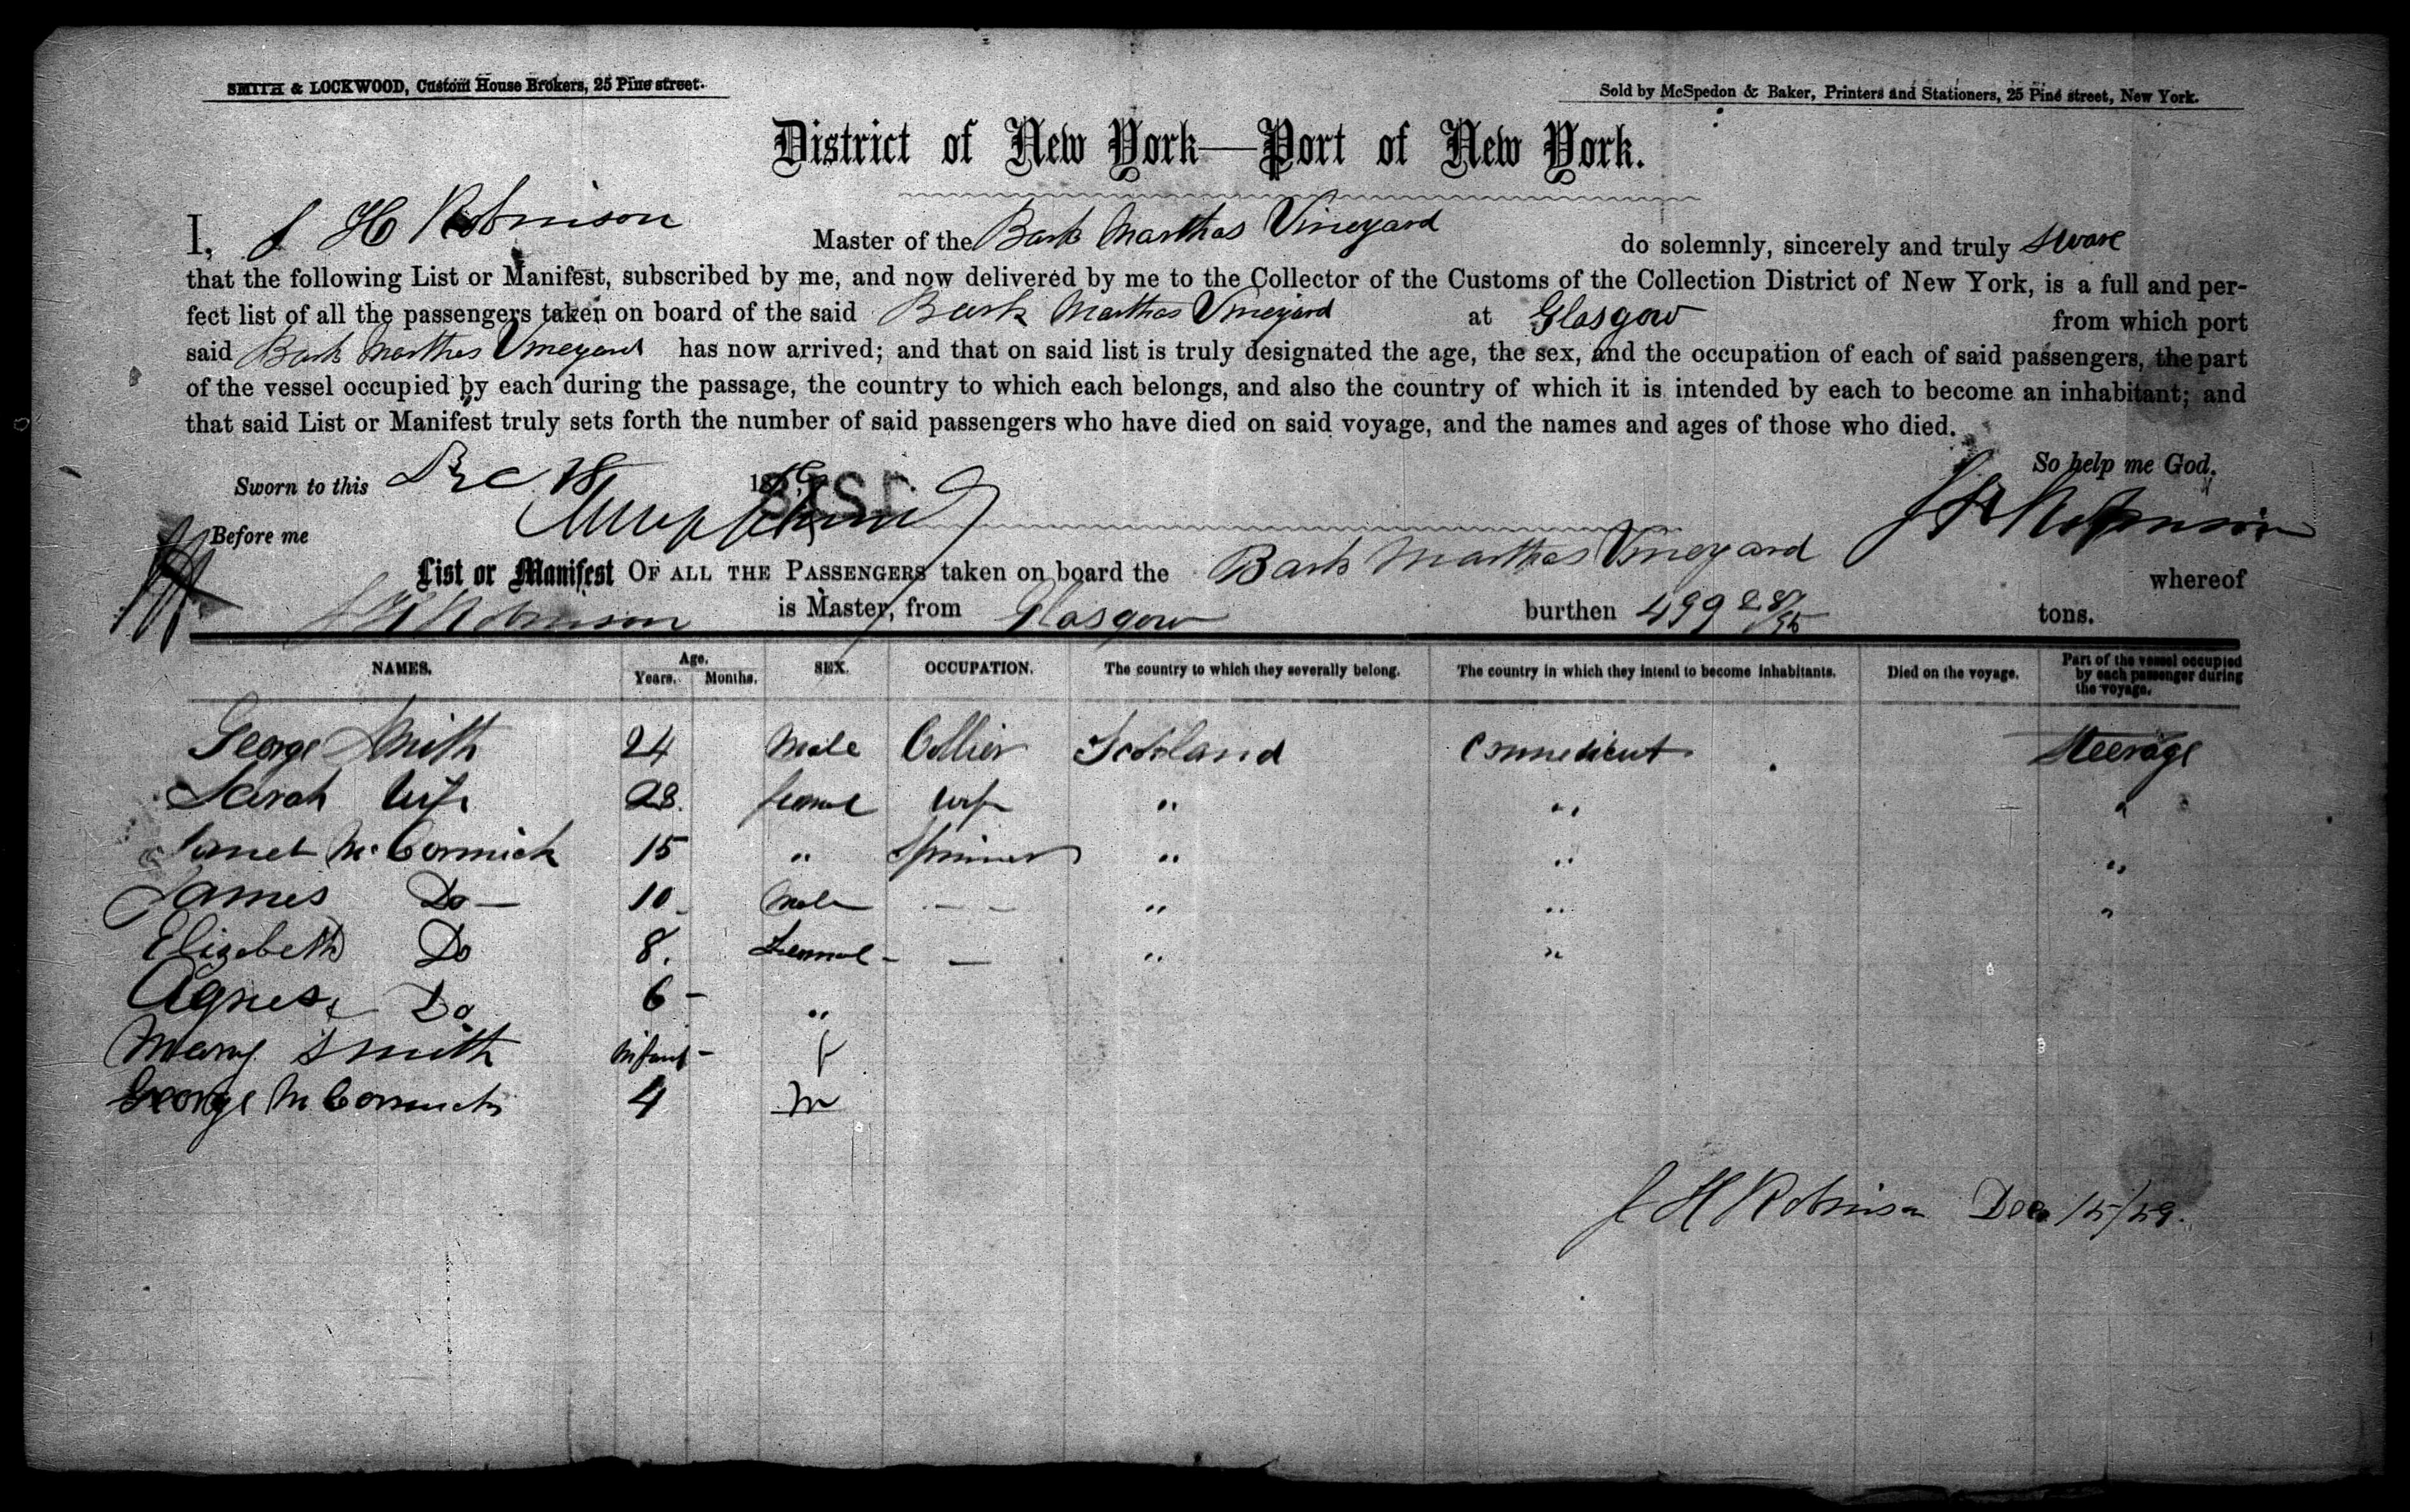 SMITH & LOCKWOOD, Custom House Brokers, 25 Pine street.
Sold by McSpedon & Baker, Printers and Stationers, 25 Pine street, New York.
District of New York—Port of New York.
I, J H Robinson Master of the Bark Marthas Vineyard do solemnly, sincerely and truly sware
that the following List or Manifest, subscribed by me, and now delivered by me to the Collector of the Customs of the Collection District of New York, is a full and per-
fect list of all the passengers taken on board of the said Bark Marthas Vineyard at Glasgow from which port
said Bark Marthas Vineyard has now arrived; and that on said list is truly designated the age, the sex, and the occupation of each of said passengers, the part
of the vessel occupied by each during the passage, the country to which each belongs, and also the country of which it is intended by each to become an inhabitant; and
that said List or Manifest truly sets forth the number of said passengers who have died on said voyage, and the names and ages of those who died.
So help me God.
Sworn to this Dec 18
J H Robinson
Before me
List or Manifest OF ALL THE PASSENGERS taken on board the Bark Marthas Vineyard whereof
J H Robinson is Master, from Glasgow burthen 499 28/95 tons.
NAMES. Age. Years. Months. SEX. OCCUPATION. The country to which they severally belong. The country in which they intend to become inhabitants. Died on the voyage. Part of the vessel occupied by each passenger during the voyage.
George Smith 24 Male Collier Scotland Connecticut Steerage
Sarah Wife 28. female Wife " " "
Janet McCormick 15 " Spinner " " "
James Do — 10 Male — — " " "
Elizabeth Do 8. Female — — " "
Agnes Do 6 — "
Mary Smith infant — f
George McCormick 4 M
J H Robinson Dec 15/49.